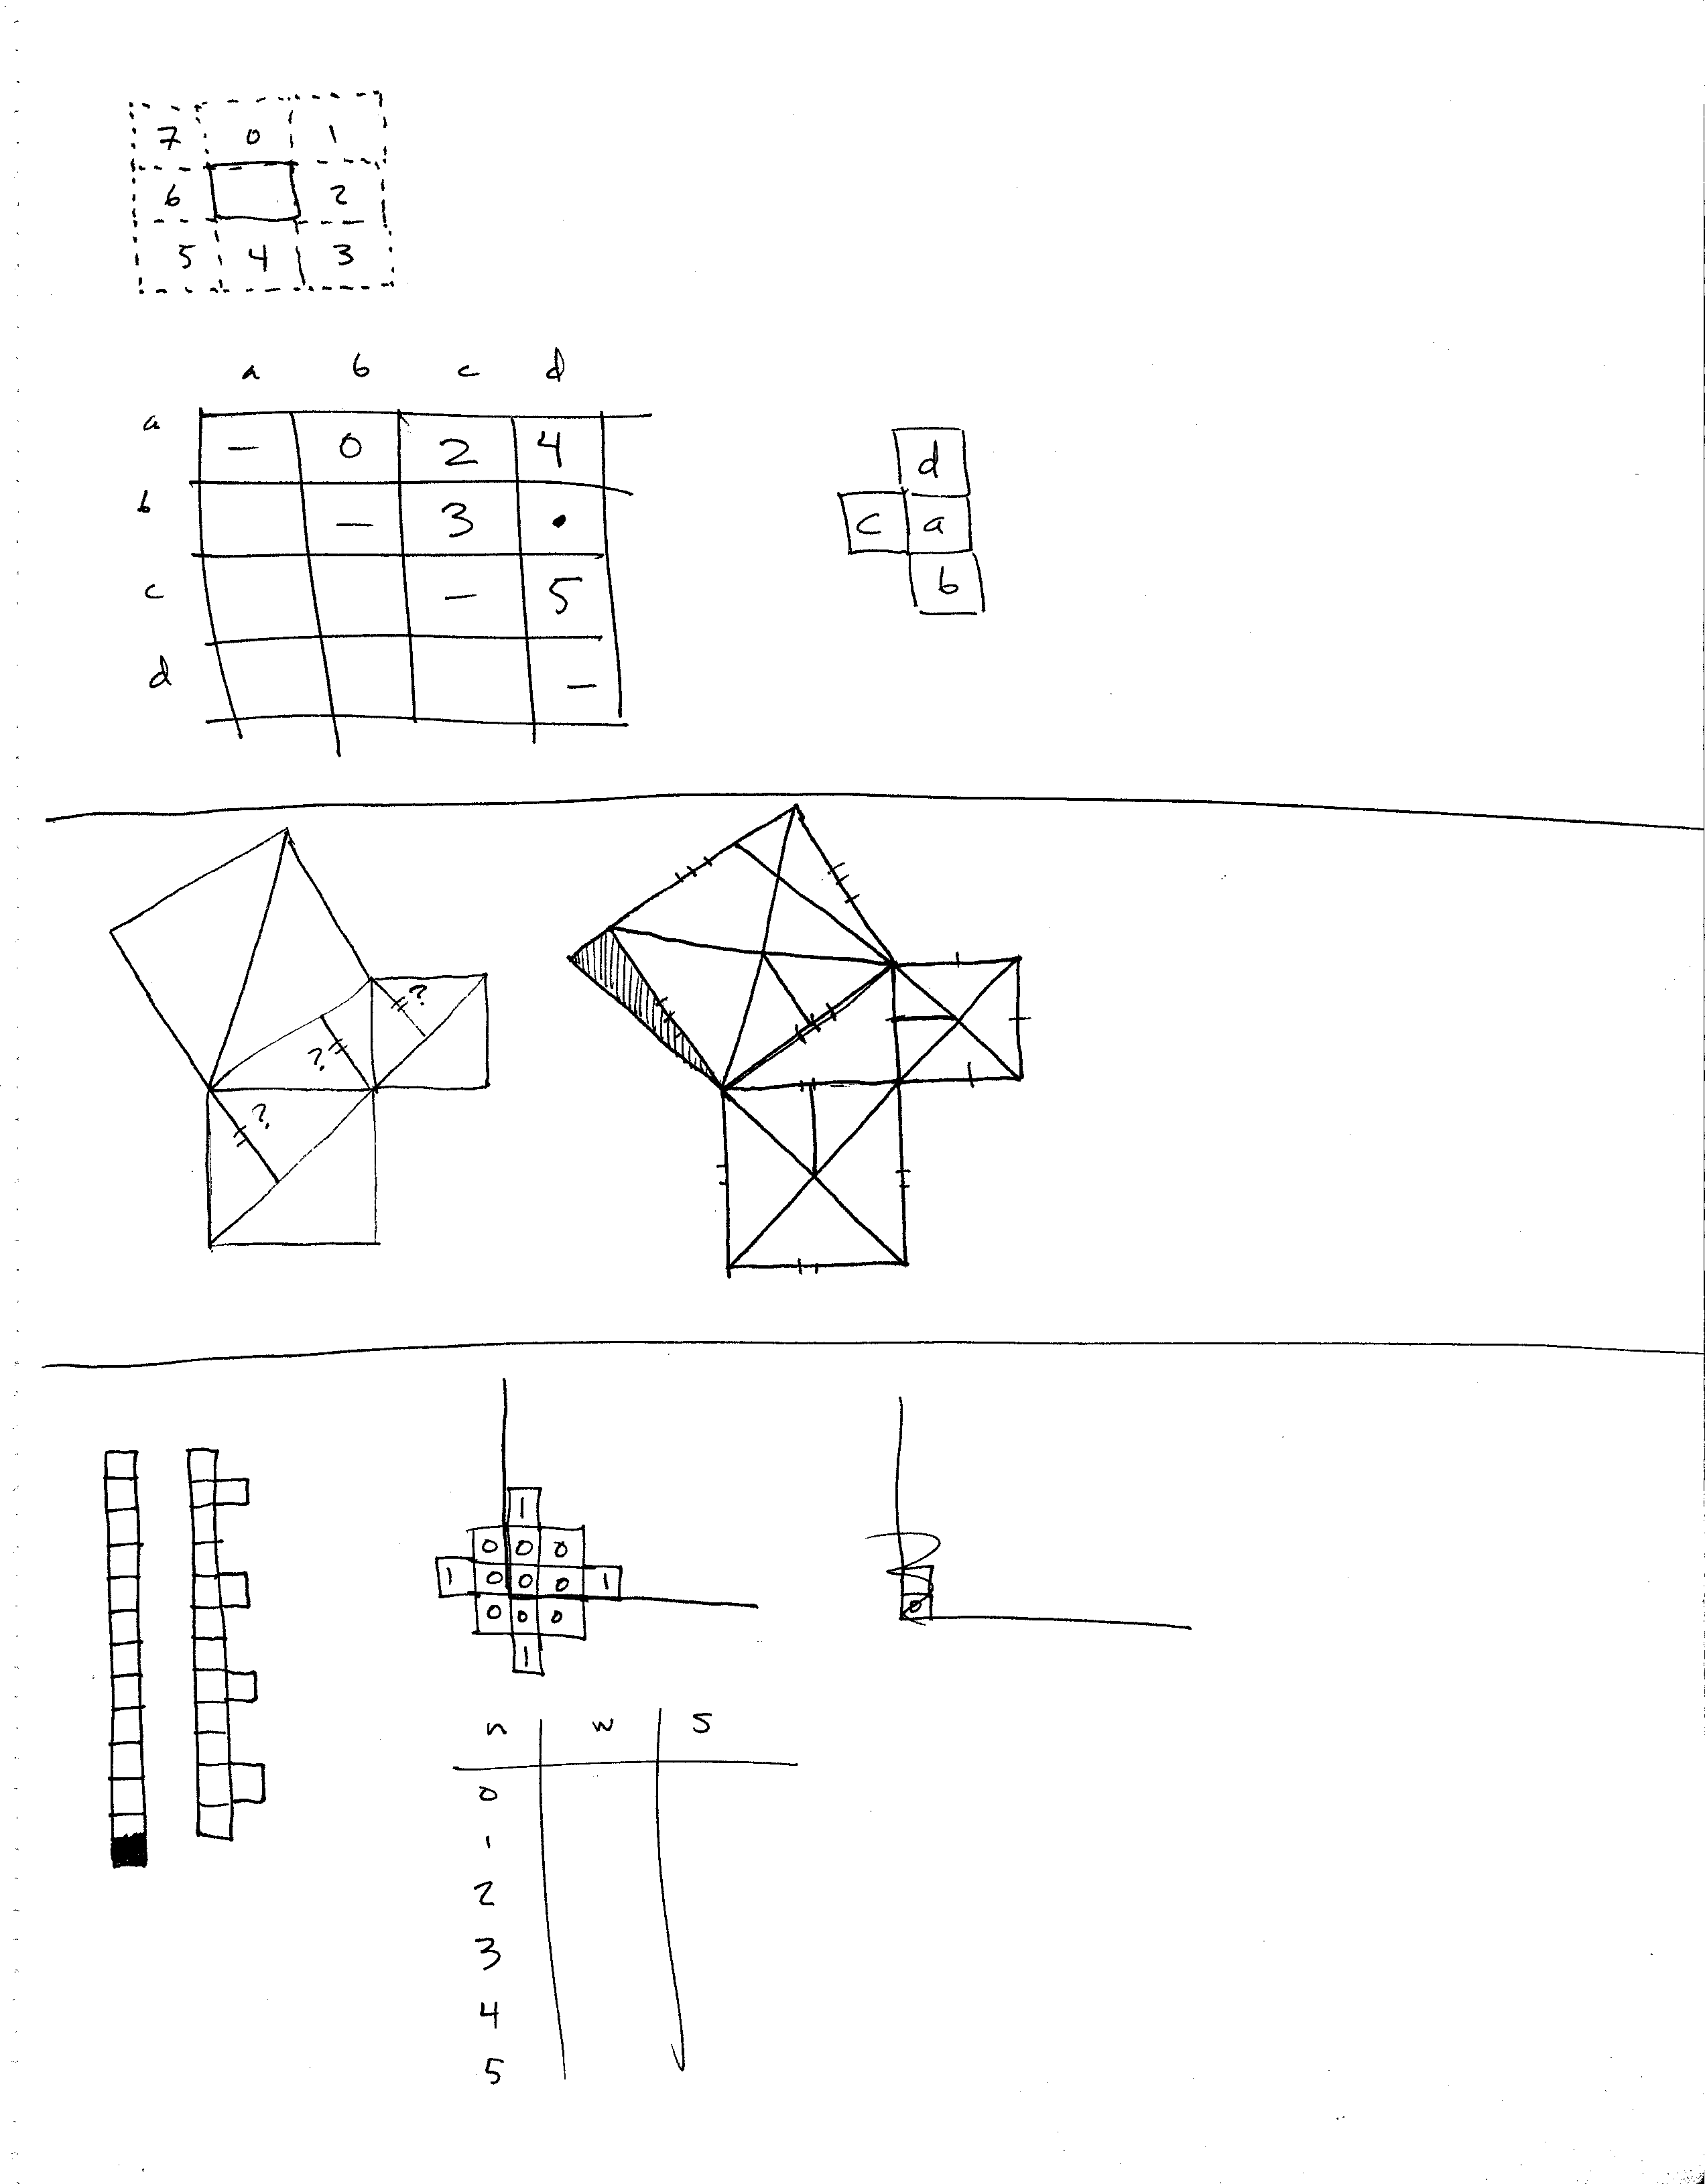 7 0 1
6 2
5 4 3
a b c d
a — 0 2 4
b — 3 •
c — 5
d —
d
c a
b
?
?
?
1
0 0 0
1 0 0 0 1
0 0 0
1
0
n w s
0
1
2
3
4
5